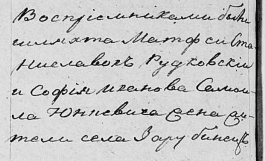 Воспріемниками были
шляхта Матфей Ста
ниславовъ Рудковскій
и Софія Иванова Самои
ла Юневича жена жи
тели села Зарубинецъ